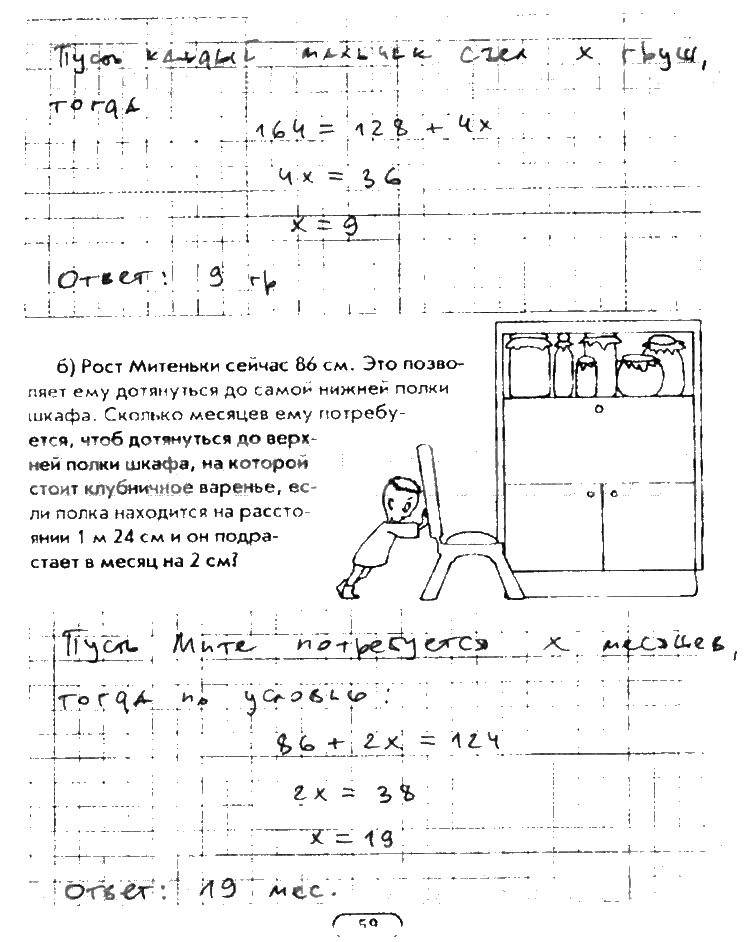 Пусть каждый мальчик съел х груш,
тогда
164 = 128 + 4х
4х = 36
х = 9
Ответ: 9 гр
б) Рост Митеньки сейчас 86 см. Это позво-
ляет ему дотянуться до самой нижней полки
шкафа. Сколько месяцев ему потребу-
ется, чтоб дотянуться до верх-
ней полки шкафа, на которой
стоит клубничное варенье, ес-
ли полка находится на рассто-
янии 1 м 24 см и он подра-
стает в месяц на 2 см?
Пусть Мите потребуется х месяцев,
тогда по условью:
86 + 2х = 124
2х = 38
х = 19
Ответ: 19 мес.
59